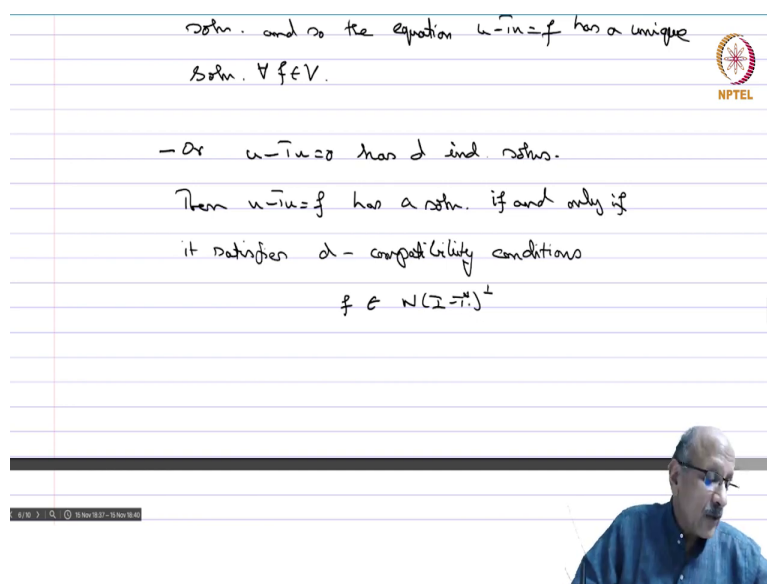 soln. and so the equation u-Tu=f has a unique
soln. ∀ f∈V.
NPTEL
- Or u-Tu=0 has d ind. solns.
Then u-Tu=f has a soln. if and only if
it satisfies d - compatibility conditions
f ∈ N(I-T*)^⊥
6/10 > 15 Nov 18:37 - 15 Nov 18:40